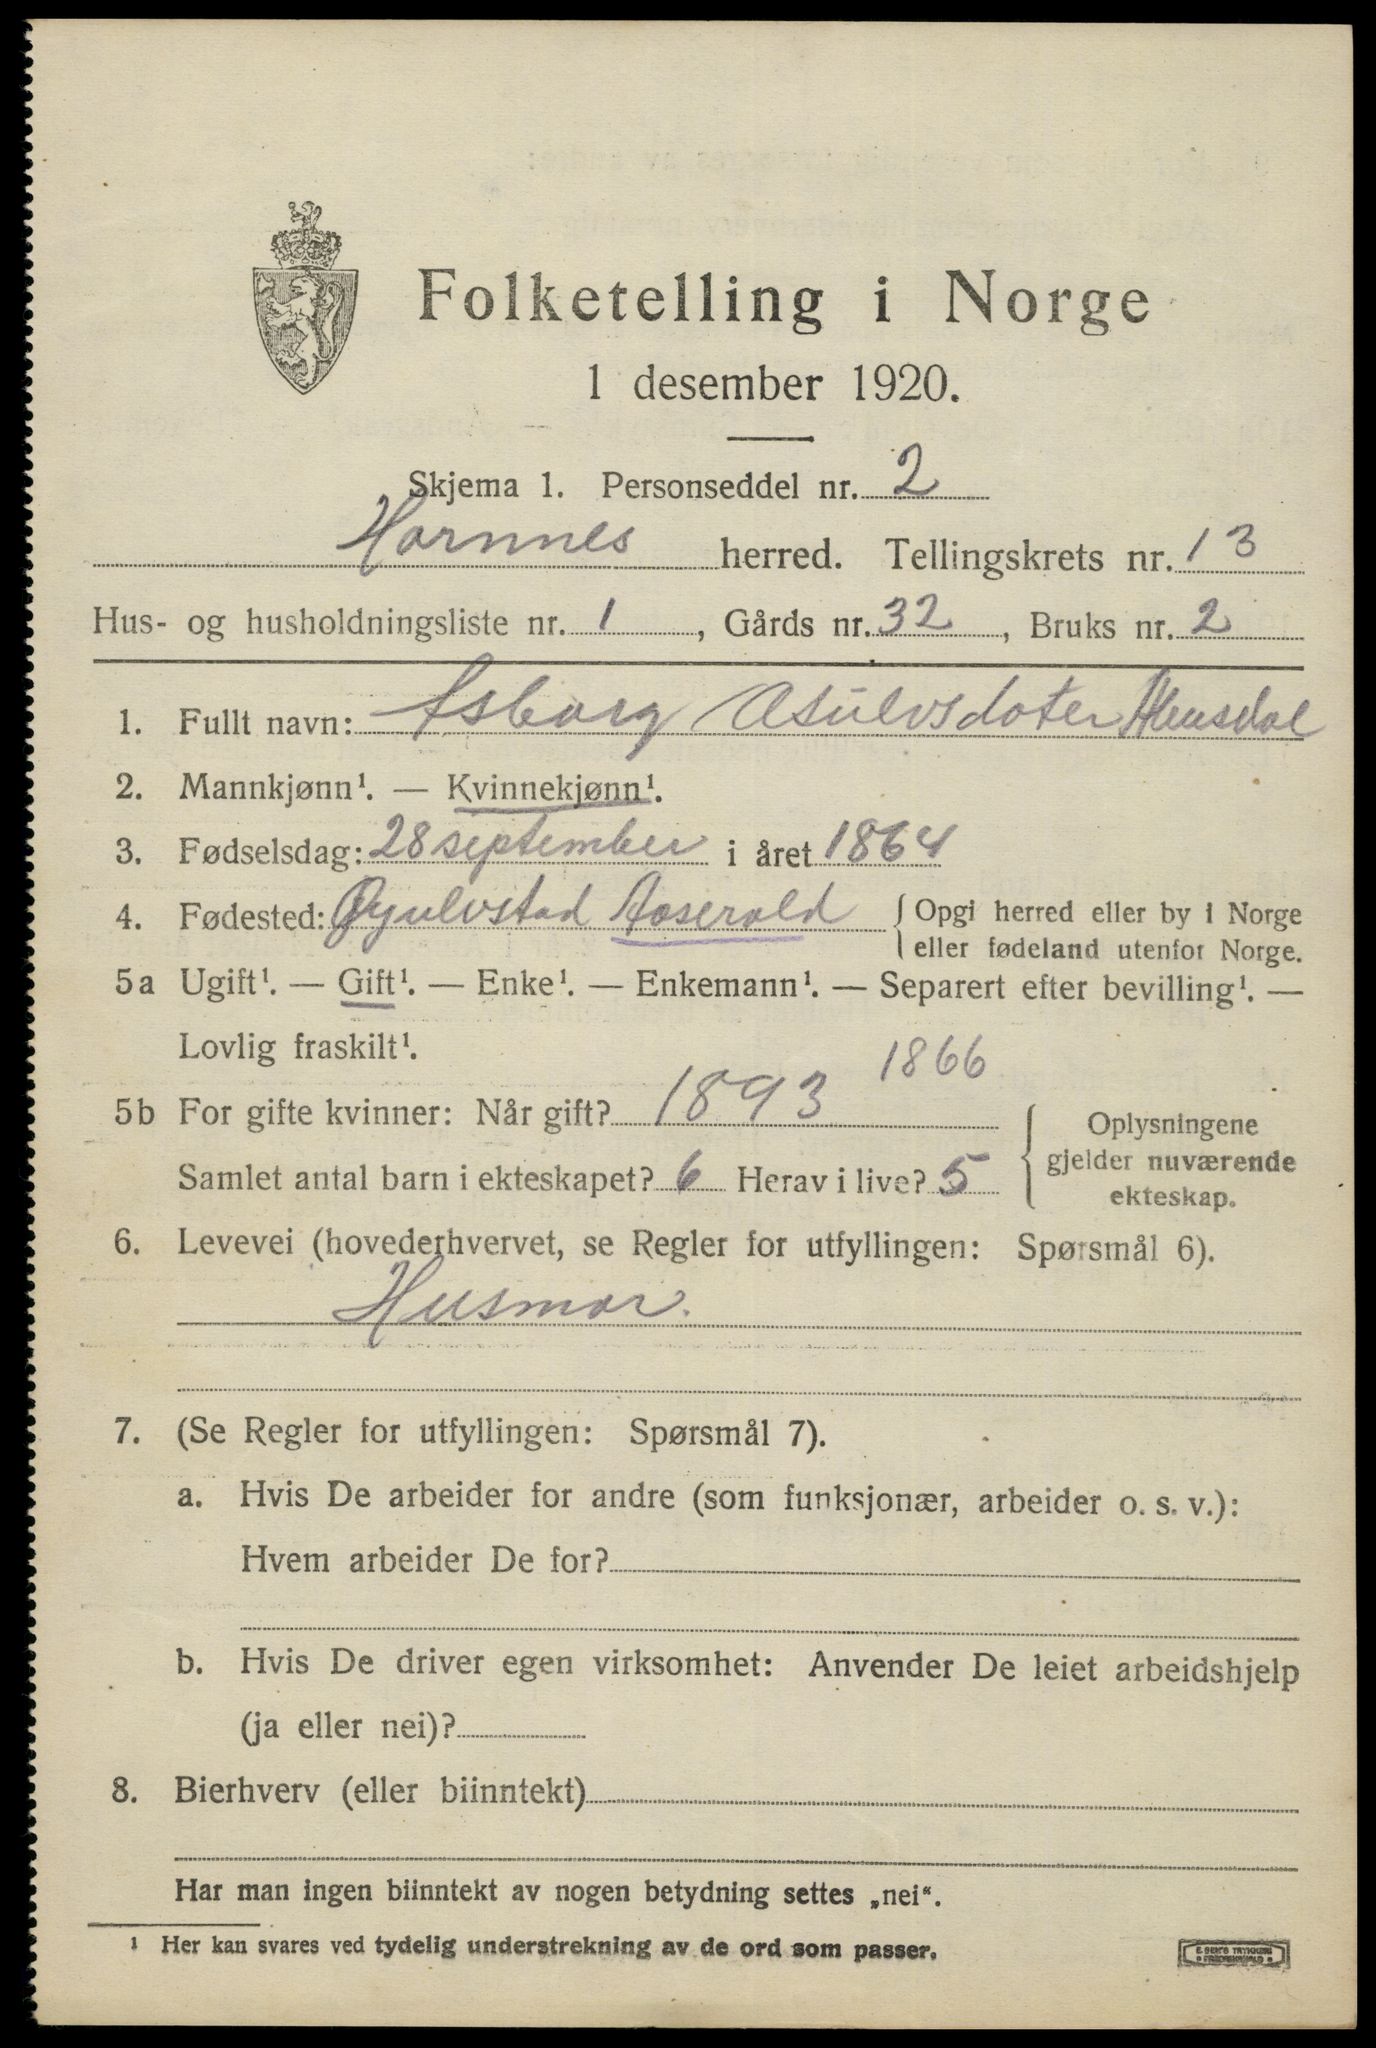 Folketelling i Norge
1 desember 1920.
Skjema 1. Personseddel nr. 2
Hornnes herred. Tellingskrets nr. 13
Hus- og husholdningsliste nr. 1, Gårds nr. 32, Bruks nr. 2
1. Fullt navn: Asborg Asulvsdater
2. Mannkjønn¹. — Kvinnekjønn¹.
3. Fødselsdag: 28 september i året 1864
4. Fødested: Øyulvstad Aaserald { Opgi herred eller by i Norge
eller fødeland utenfor Norge.
5a Ugift¹. — Gift¹. — Enke¹. — Enkemann¹. — Separert efter bevilling¹. —
Lovlig fraskilt¹.
1866
5b For gifte kvinner: Når gift? 1893
Samlet antal barn i ekteskapet? 6 Herav i live? 5
{ Oplysningene
gjelder nuværende
ekteskap.
6. Levevei (hovederhvervet, se Regler for utfyllingen: Spørsmål 6).
Husmor.
7. (Se Regler for utfyllingen: Spørsmål 7).
a. Hvis De arbeider for andre (som funksjonær, arbeider o. s. v.):
Hvem arbeider De for?
b. Hvis De driver egen virksomhet: Anvender De leiet arbeidshjelp
(ja eller nei)?
8. Bierhverv (eller biinntekt)
Har man ingen biinntekt av nogen betydning settes „nei“.
¹ Her kan svares ved tydelig understrekning av de ord som passer.